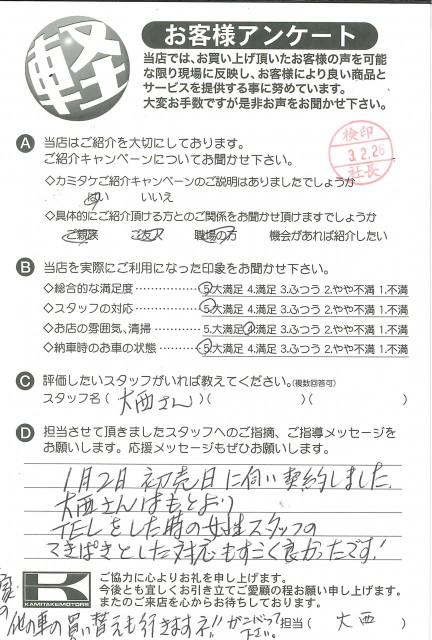 軽
お客様アンケート
当店では、お買い上げ頂いたお客様の声を可能
な限り現場に反映し、お客様により良い商品と
サービスを提供する事に努めています。
大変お手数ですが是非お声をお聞かせ下さい。
検印
3.2.26
社長
A 当店はご紹介を大切にしております。
ご紹介キャンペーンについてお聞かせ下さい。
◇カミタケご紹介キャンペーンのご説明はありましたでしょうか
はい いいえ
◇具体的にご紹介頂ける方とのご関係をお聞かせ頂けますでしょうか
ご親族 ご友人 職場の方 機会があれば紹介したい
B 当店を実際にご利用になった印象をお聞かせ下さい。
◇総合的な満足度……………5.大満足 4.満足 3.ふつう 2.やや不満 1.不満
◇スタッフの対応……………5.大満足 4.満足 3.ふつう 2.やや不満 1.不満
◇お店の雰囲気、清掃………5.大満足 4.満足 3.ふつう 2.やや不満 1.不満
◇納車時のお車の状態………5.大満足 4.満足 3.ふつう 2.やや不満 1.不満
C 評価したいスタッフがいれば教えてください。(複数回答可)
スタッフ名( 大西さん )( )( )
D 担当させて頂きましたスタッフへのご指摘、ご指導メッセージを
お願いします。応援メッセージもぜひお願いします。
1月2日初売日に伺い契約しました。
大西さんはもとより
TELをした時の女性スタッフの
てきぱきとした対応もすごく良かったです!
K
KAMITAKEMOTORS
ご協力に心よりお礼を申し上げます。
今後とも宜しくお引き立てご愛顧の程お願い申し上げます。
またのご来店を心からお待ちしております。
他の車の買い替えも行きますネ!! ガンバって下さい。
担当( 大西 )